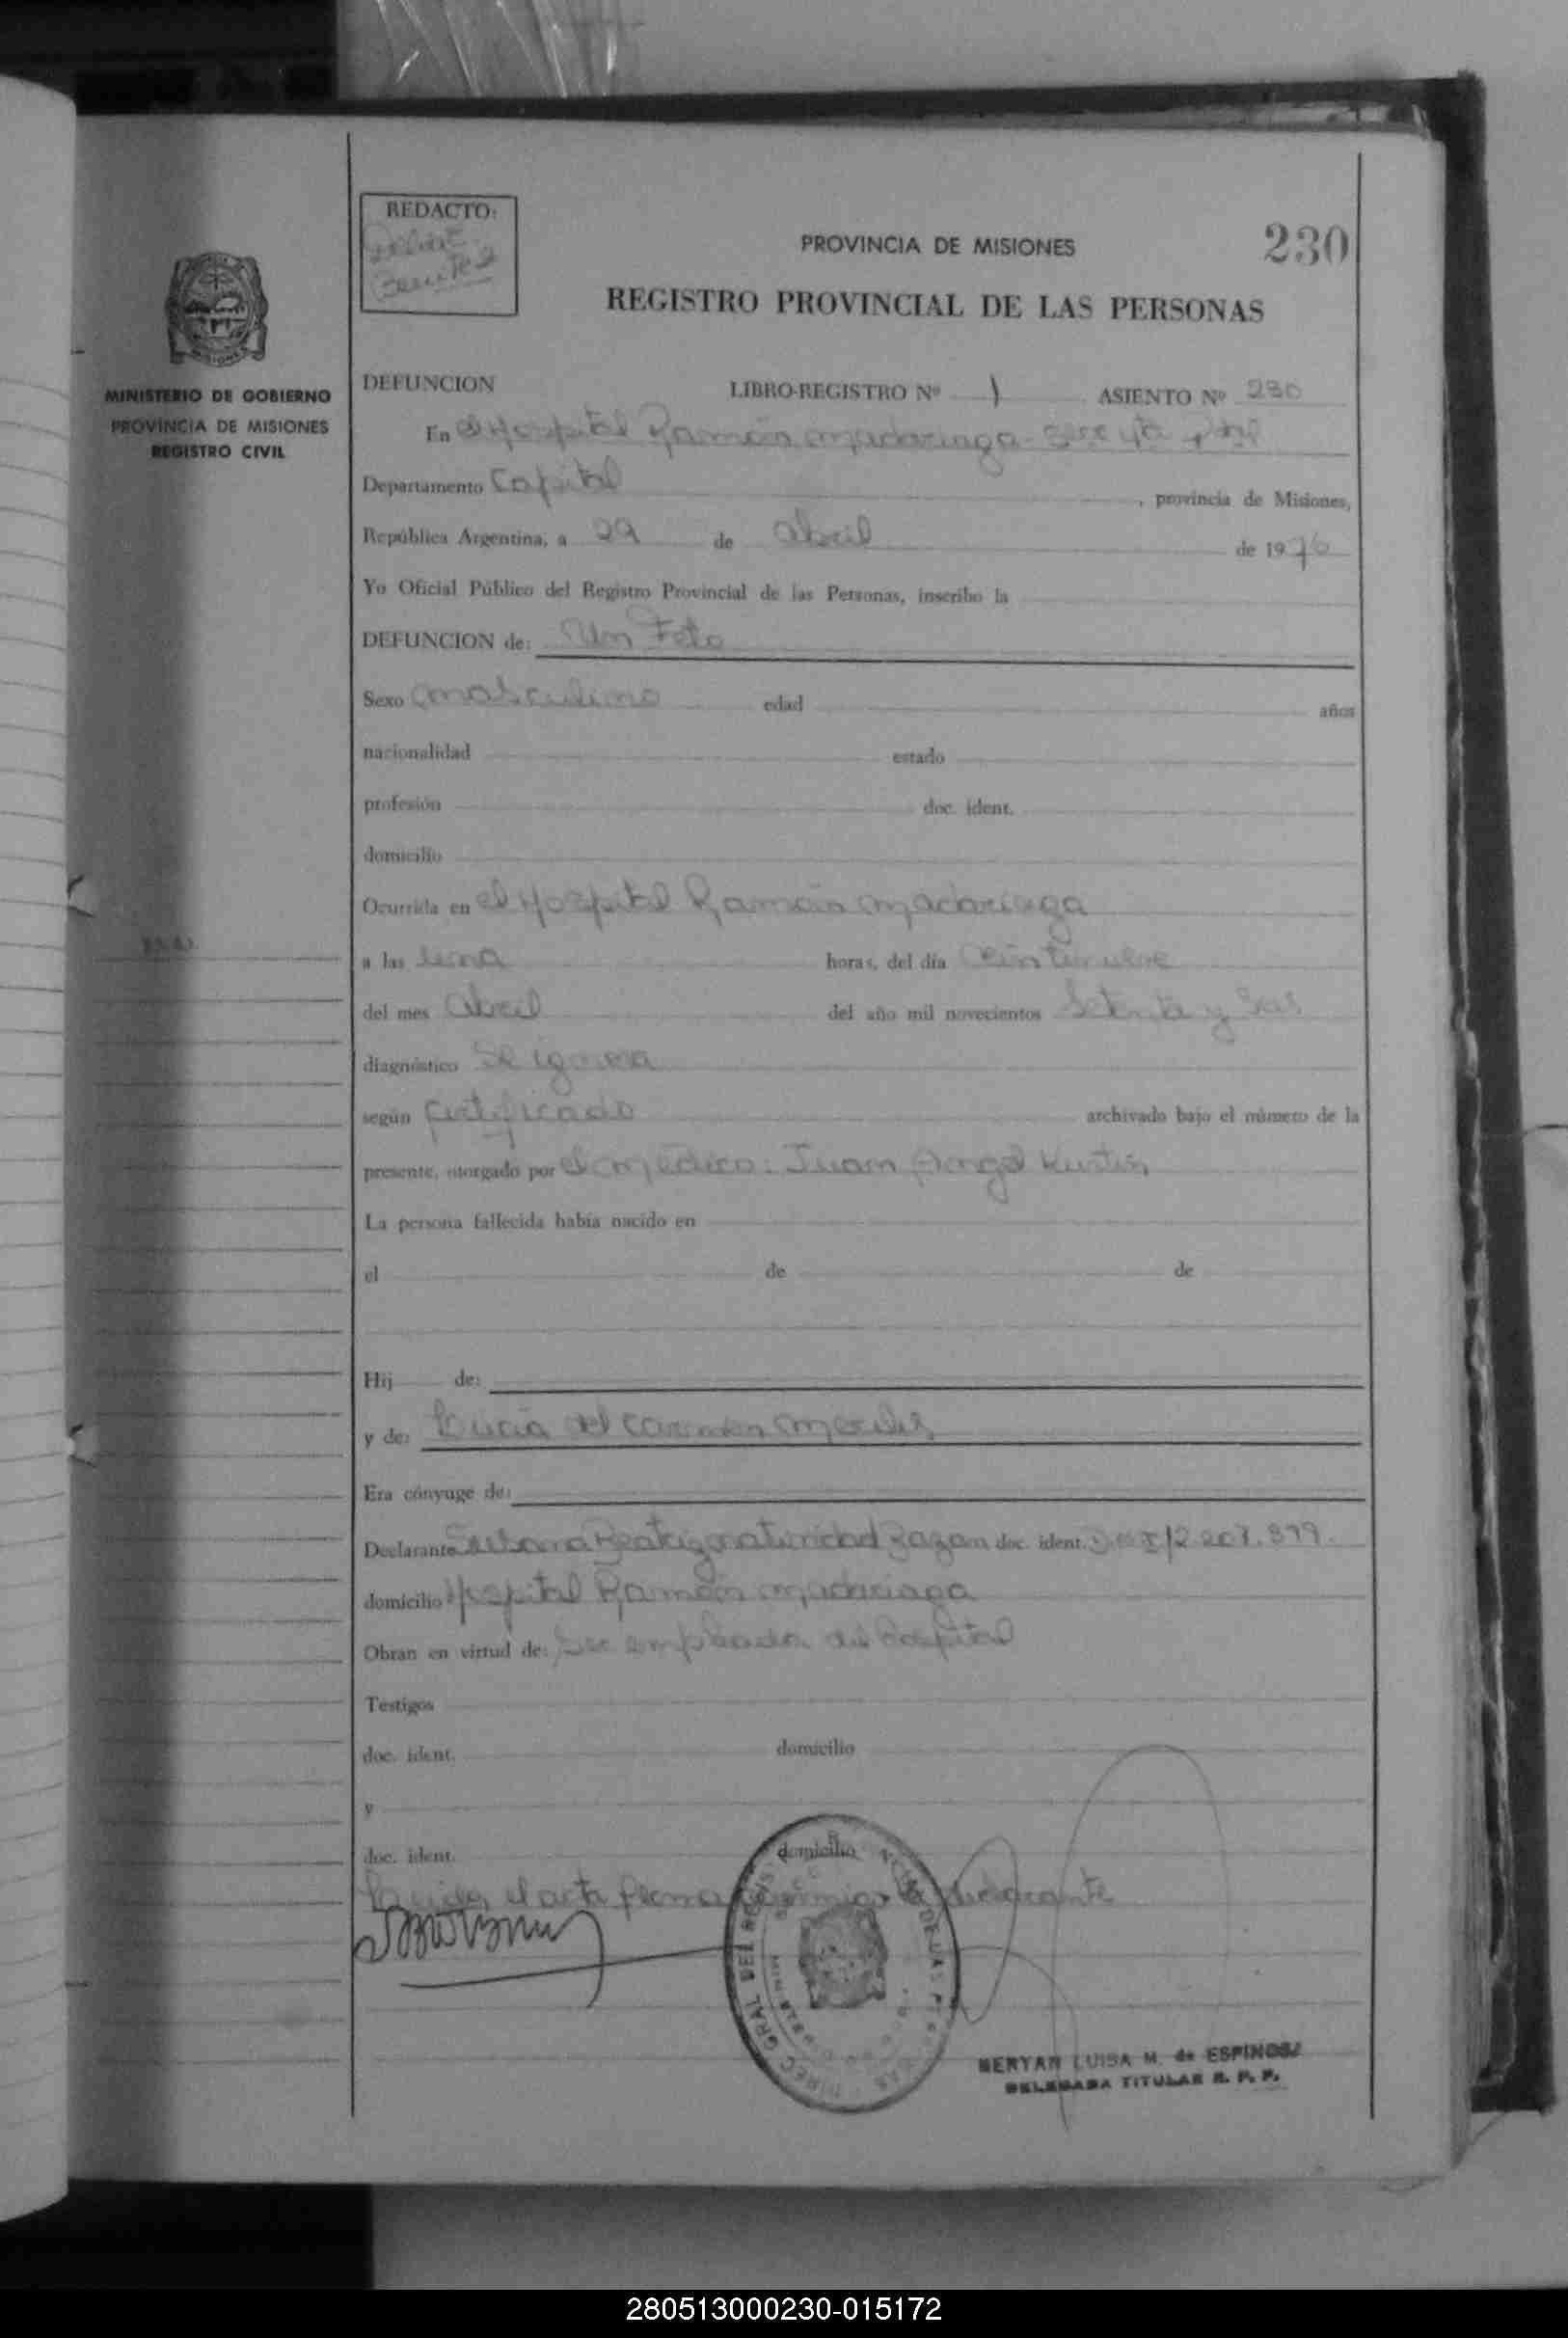 REDACTO:
230
PROVINCIA DE MISIONES
REGISTRO PROVINCIAL DE LAS PERSONAS
MISIONES
MINISTERIO DE GOBIERNO
PROVINCIA DE MISIONES
REGISTRO CIVIL
DEFUNCION LIBRO-REGISTRO Nº 1 ASIENTO Nº 230
En el Hospital Ramón Madariaga
Departamento Capital, provincia de Misiones,
República Argentina, a 29 de abril de 1976
Yo Oficial Público del Registro Provincial de las Personas, inscribo la
DEFUNCION de: Un Feto
Sexo masculino edad años
nacionalidad estado
profesión doc. ident.
domicilio
Ocurrida en el Hospital Ramón Madariaga
a las una horas, del día
del mes abril del año mil novecientos Setenta y Seis
diagnóstico Se ignora
según certificado archivado bajo el número de la
presente, otorgado por el medico: Juan Angel
La persona fallecida había nacido en
el de de
Hij de:
y de: Lucia del Carmen
Era cónyuge de:
Declarante doc. ident.
domicilio Hospital Ramón Madariaga
Obran en virtud de: Ser empleada del hospital
Testigos
doc. ident. domicilio
y
doc. ident. domicilio
el acta firma la declarante
LUISA M. de ESPINOSA
DELEGADA TITULAR R. P. P.
280513000230-015172